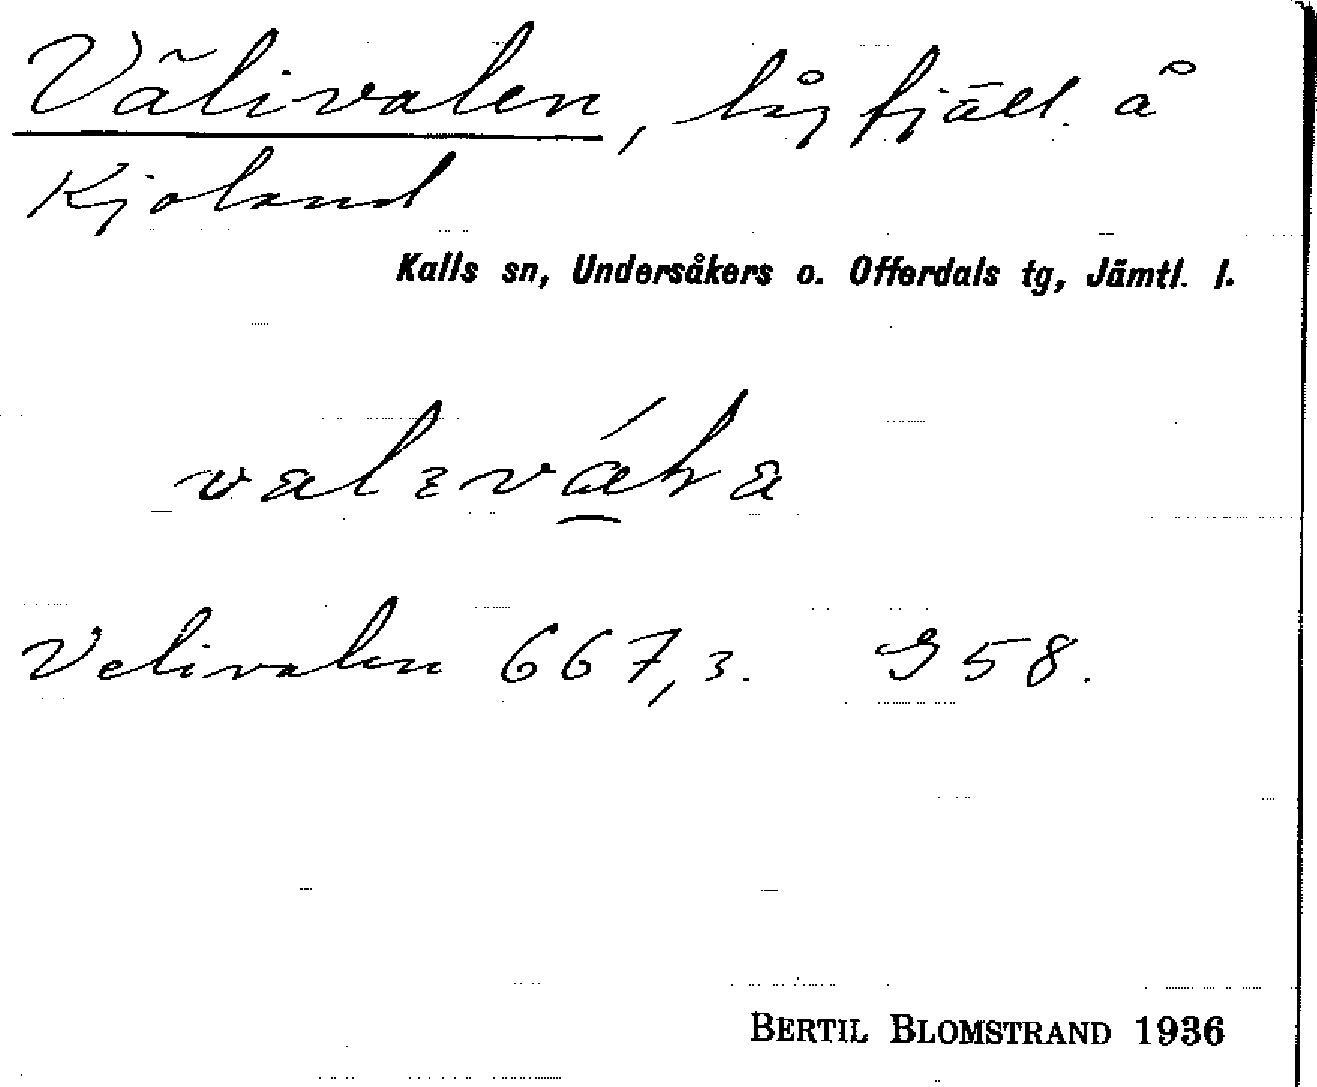 Välivalen, lågfjäll. å
Kjoland
Kalls sn, Undersåkers o. Offerdals tg, Jämtl. l.
Velivalen 667,3. G 58.
BERTIL BLOMSTRAND 1936